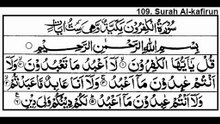 109. Surah Al-kafirun
سُوْرَةُ الْكٰفِرُوْنَ مَكِّيَّةٌ وَّهِيَ سِتُّ اٰيَاتٍ
بِسْمِ اللّٰهِ الرَّحْمٰنِ الرَّحِيْمِ
قُلْ يٰٓاَيُّهَا الْكٰفِرُوْنَ لَآ اَعْبُدُ مَا تَعْبُدُوْنَ وَلَآ
اَنْتُمْ عٰبِدُوْنَ مَآ اَعْبُدُ وَلَآ اَنَا عَابِدٌ مَّا عَبَدْتُّمْ
وَلَآ اَنْتُمْ عٰبِدُوْنَ مَآ اَعْبُدُ لَكُمْ دِيْنُكُمْ وَلِيَ دِيْنِ